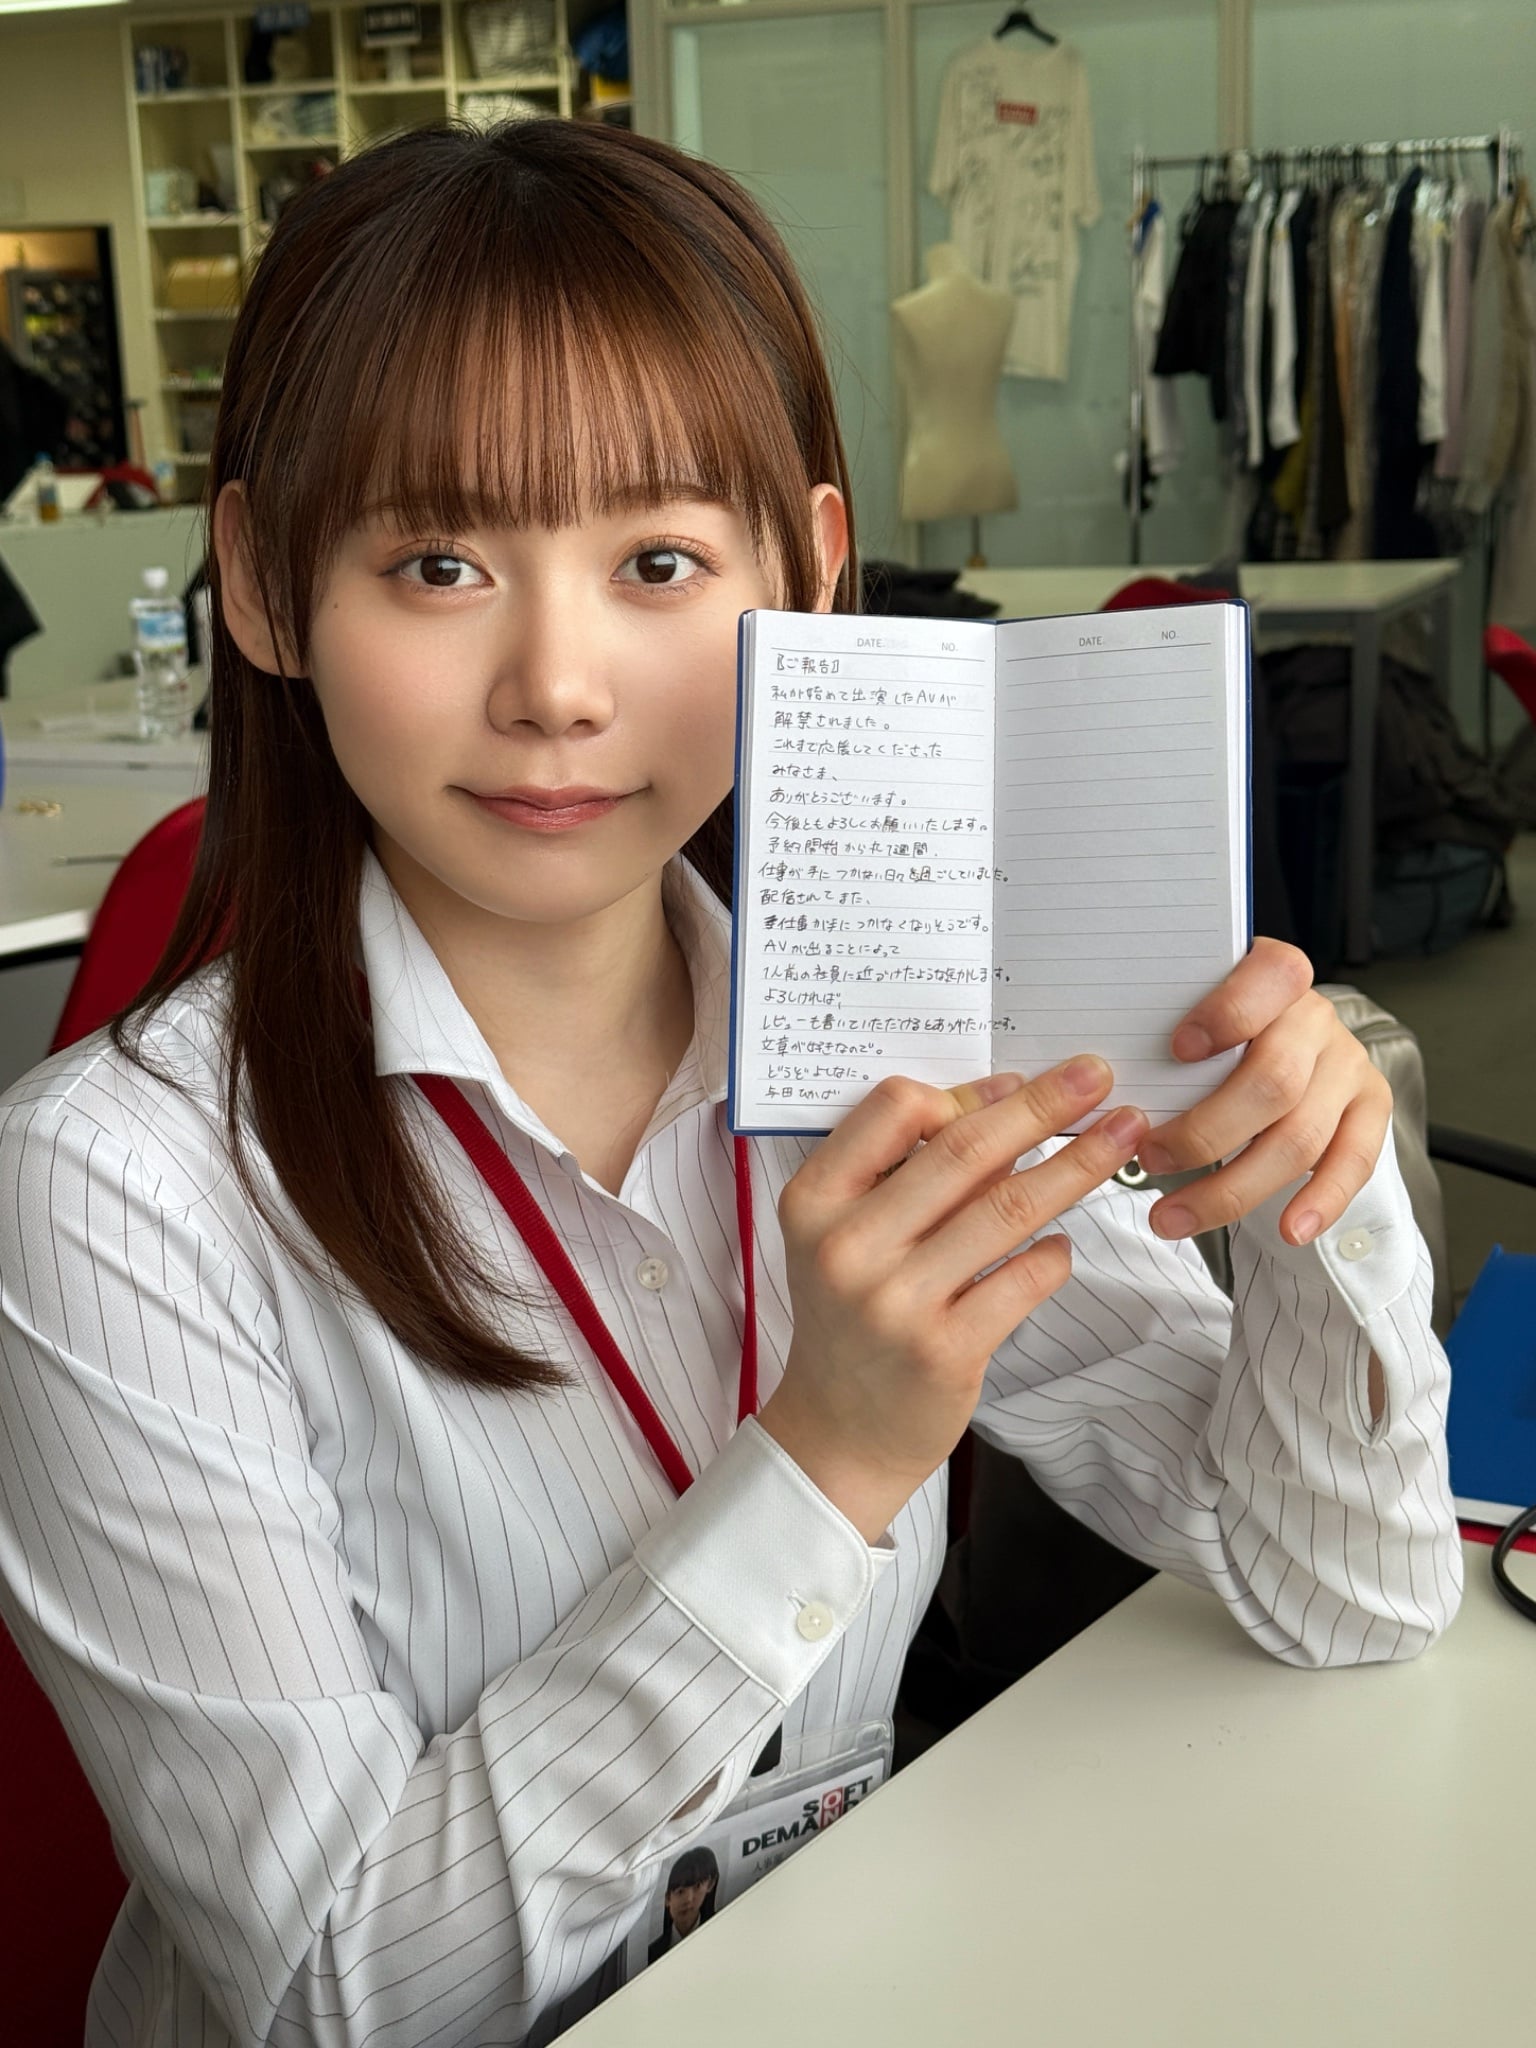 DATE. NO.
【ご報告】
私が始めて出演したAVが
解禁されました。
これまで応援してくださった
みなさま、
ありがとうございます。
今後ともよろしくお願いいたします。
予約開始から1週間、
仕事が手につかない日々を過ごしていました。
配信されてまた、
仕事が手につかなくなりそうです。
AVが出ることによって
1人前の社員に近づけたような気がします。
よろしければ、
レビューも書いていただけるとありがたいです。
文章が好きなので。
どうぞよしなに。
与田ひかば
DATE. NO.
SOFT
ON
DEMAND
人事部